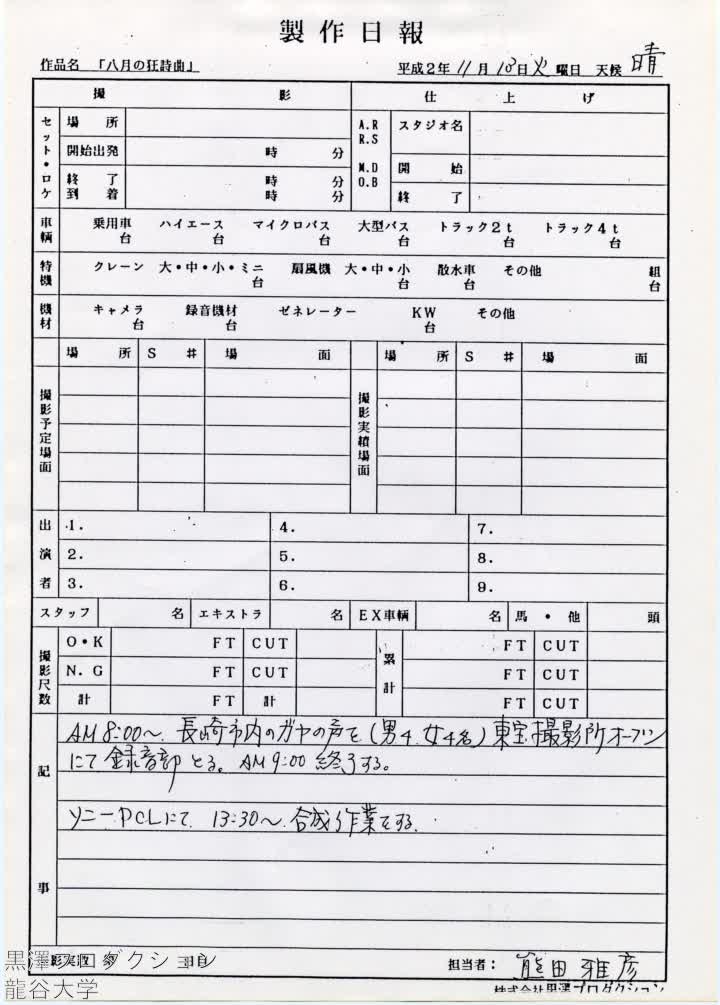 製作日報
作品名 「八月の狂詩曲」 平成2年 11月 13日 火曜日 天候 晴
撮 影 仕上げ
セット・ロケ 場所 A.R R.S M.D O.B スタジオ名
開始出発 時 分 開始
終了 時 分
到着 時 分 終了
車輌 乗用車 台 ハイエース 台 マイクロバス 台 大型バス 台 トラック2t 台 トラック4t 台
特機 クレーン 大・中・小・ミニ 台 扇風機 大・中・小 台 散水車 台 その他 組 台
機材 キャメラ 台 録音機材 台 ゼネレーター KW 台 その他
場所 S# 場面 場所 S# 場面
撮影予定場面 撮影実績場面
出演者 1. 4. 7.
2. 5. 8.
3. 6. 9.
スタッフ 名 エキストラ 名 EX車輌 名 馬・他 頭
撮影尺数 O・K FT CUT 累計 FT CUT
N.G FT CUT FT CUT
計 FT 計 FT CUT
記事
AM 8:00〜 長崎市内のガヤの声を(男4、女4名)東宝撮影所オープン
にて録音部とる。AM 9:00 終了する。
ソニーPCLにて 13:30〜 合成作業をする。
担当者: 熊田雅彦
株式会社黒澤プロダクション
龍谷大学